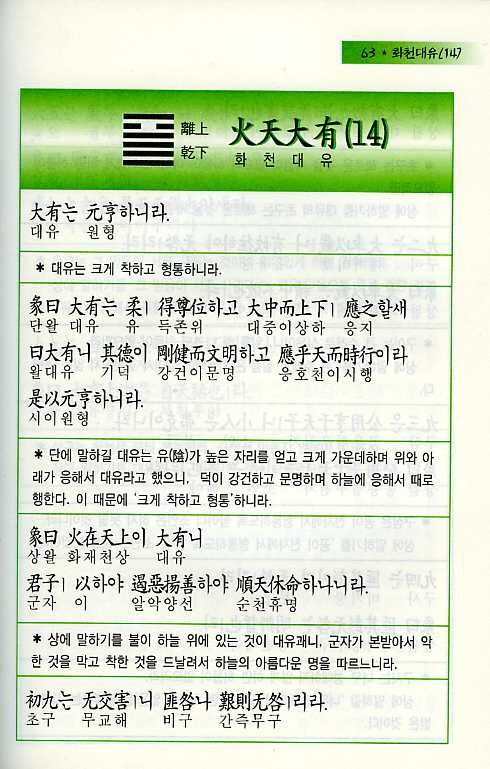 63 * 화천대유(14)
離上
乾下
火天大有(14)
화 천 대 유
大有는 元亨하니라.
대유 원형
* 대유는 크게 착하고 형통하니라.
彖曰 大有는 柔ㅣ 得尊位하고 大中而上下ㅣ 應之할새
단왈 대유 유 득존위 대중이상하 응지
曰大有니 其德이 剛健而文明하고 應乎天而時行이라
왈대유 기덕 강건이문명 응호천이시행
是以元亨하니라.
시이원형
* 단에 말하길 대유는 유(陰)가 높은 자리를 얻고 크게 가운데하며 위와 아
래가 응해서 대유라고 했으니, 덕이 강건하고 문명하며 하늘에 응해서 때로
행한다. 이 때문에 '크게 착하고 형통'하니라.
象曰 火在天上이 大有니
상왈 화재천상 대유
君子ㅣ 以하야 遏惡揚善하야 順天休命하나니라.
군자 이 알악양선 순천휴명
* 상에 말하기를 불이 하늘 위에 있는 것이 대유괘니, 군자가 본받아서 악
한 것을 막고 착한 것을 드날려서 하늘의 아름다운 명을 따르느니라.
初九는 无交害ㅣ니 匪咎나 艱則无咎ㅣ리라.
초구 무교해 비구 간즉무구